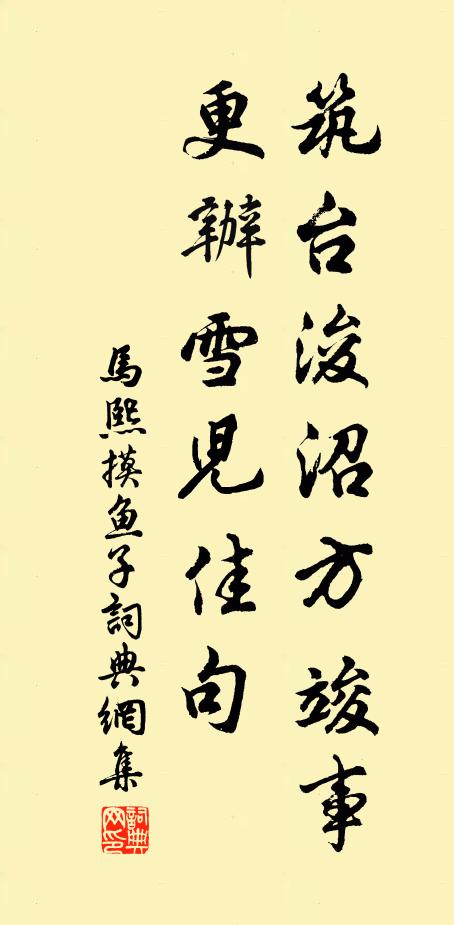 筑台浚沼方竣事
更辦雪見佳句
馬熙摸鱼子詞典網集
詞典网印